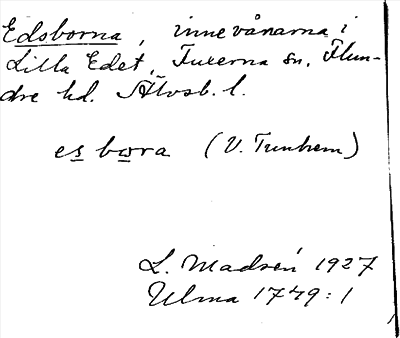 Edsborna, innevånarna i
Lilla Edet, Fuxerna sn, Flun-
dre hd. Älvsb. l.
es bora (V. Tunhem)
L. Madsén 1927
Ulma 1749:1